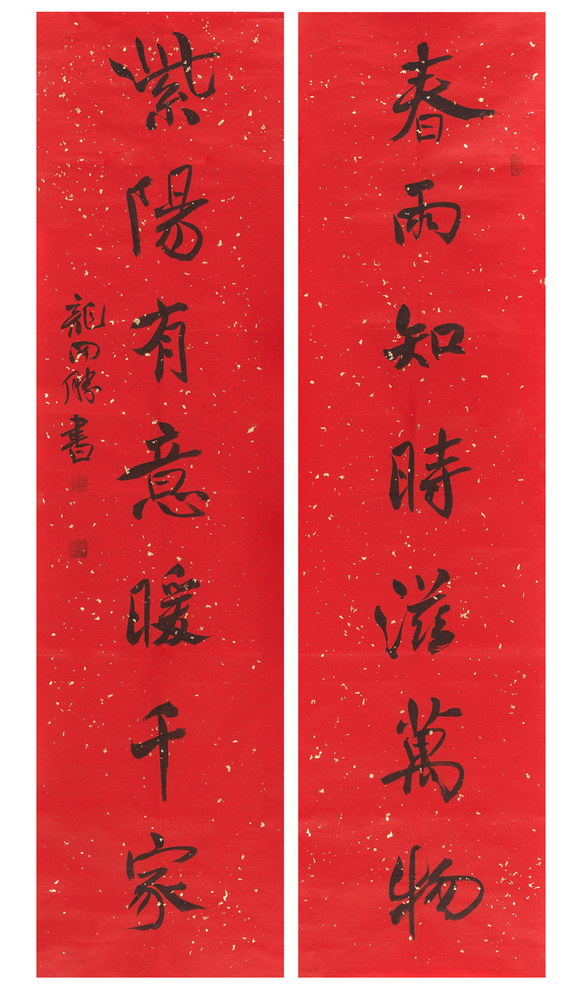 春雨知時滋萬物
紫陽有意暖千家
龍開勝書